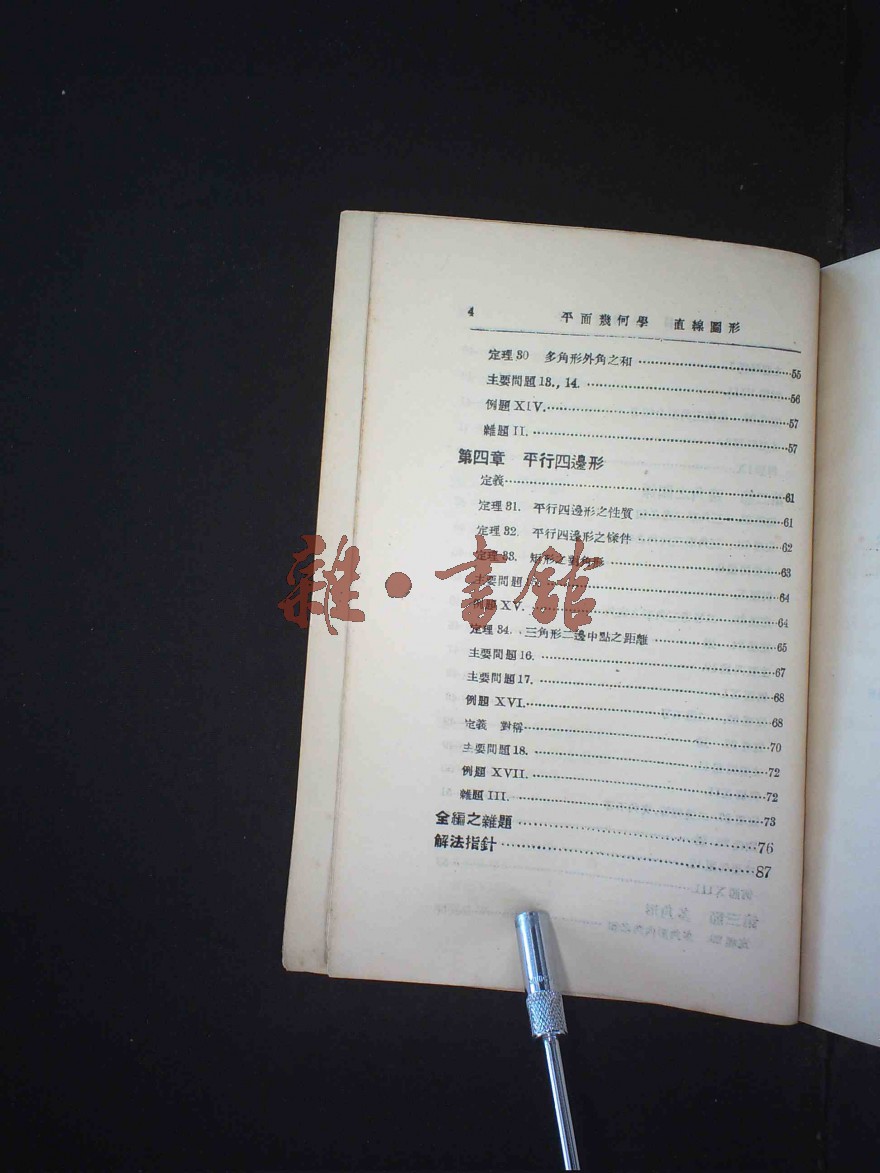 4 平面幾何學 直線圖形
定理30 多角形外角之和 ……55
主要問題13., 14. ……56
例題XIV. ……57
雜題II. ……57
第四章 平行四邊形
定義……61
定理31. 平行四邊形之性質 ……61
定理32. 平行四邊形之條件 ……62
定理33. 矩形之對角形 ……63
主要問題 ……64
例題XV. ……64
定理34. 三角形二邊中點之距離 ……65
主要問題16. ……67
主要問題17. ……68
例題 XVI. ……68
定義 對稱……70
主要問題18. ……72
例題 XVII. ……72
雜題III. ……73
全編之雜題 ……76
解法指針 ……87
雜·書館